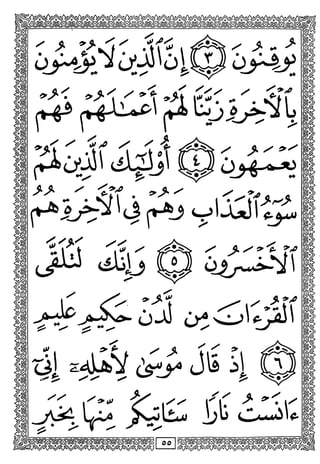 يُوقِنُونَ ٣ إِنَّ ٱلَّذِينَ لَا يُؤْمِنُونَ
بِٱلْأَخِرَةِ زَيَّنَّا لَهُمْ أَعْمَـٰلَهُمْ فَهُمْ
يَعْمَهُونَ ٤ أُو۟لَـٰٓئِكَ ٱلَّذِينَ لَهُمْ
سُوٓءُ ٱلْعَذَابِ وَهُمْ فِى ٱلْأَخِرَةِ هُمُ
ٱلْأَخْسَرُونَ ٥ وَإِنَّكَ لَتُلَقَّى
ٱلْقُرْءَانَ مِن لَّدُنْ حَكِيمٍ عَلِيمٍ
٦ إِذْ قَالَ مُوسَىٰ لِأَهْلِهِۦٓ إِنِّىٓ
ءَانَسْتُ نَارًا سَـَٔاتِيكُم مِّنْهَا بِخَبَرٍ
٥٥